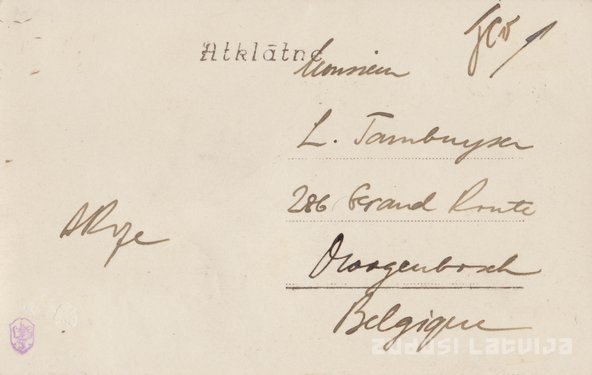 Atklātne
Monsieur
L. Tambuyser
286 Grand Route
Droogenbosch
Belgique
zudusi Latvija